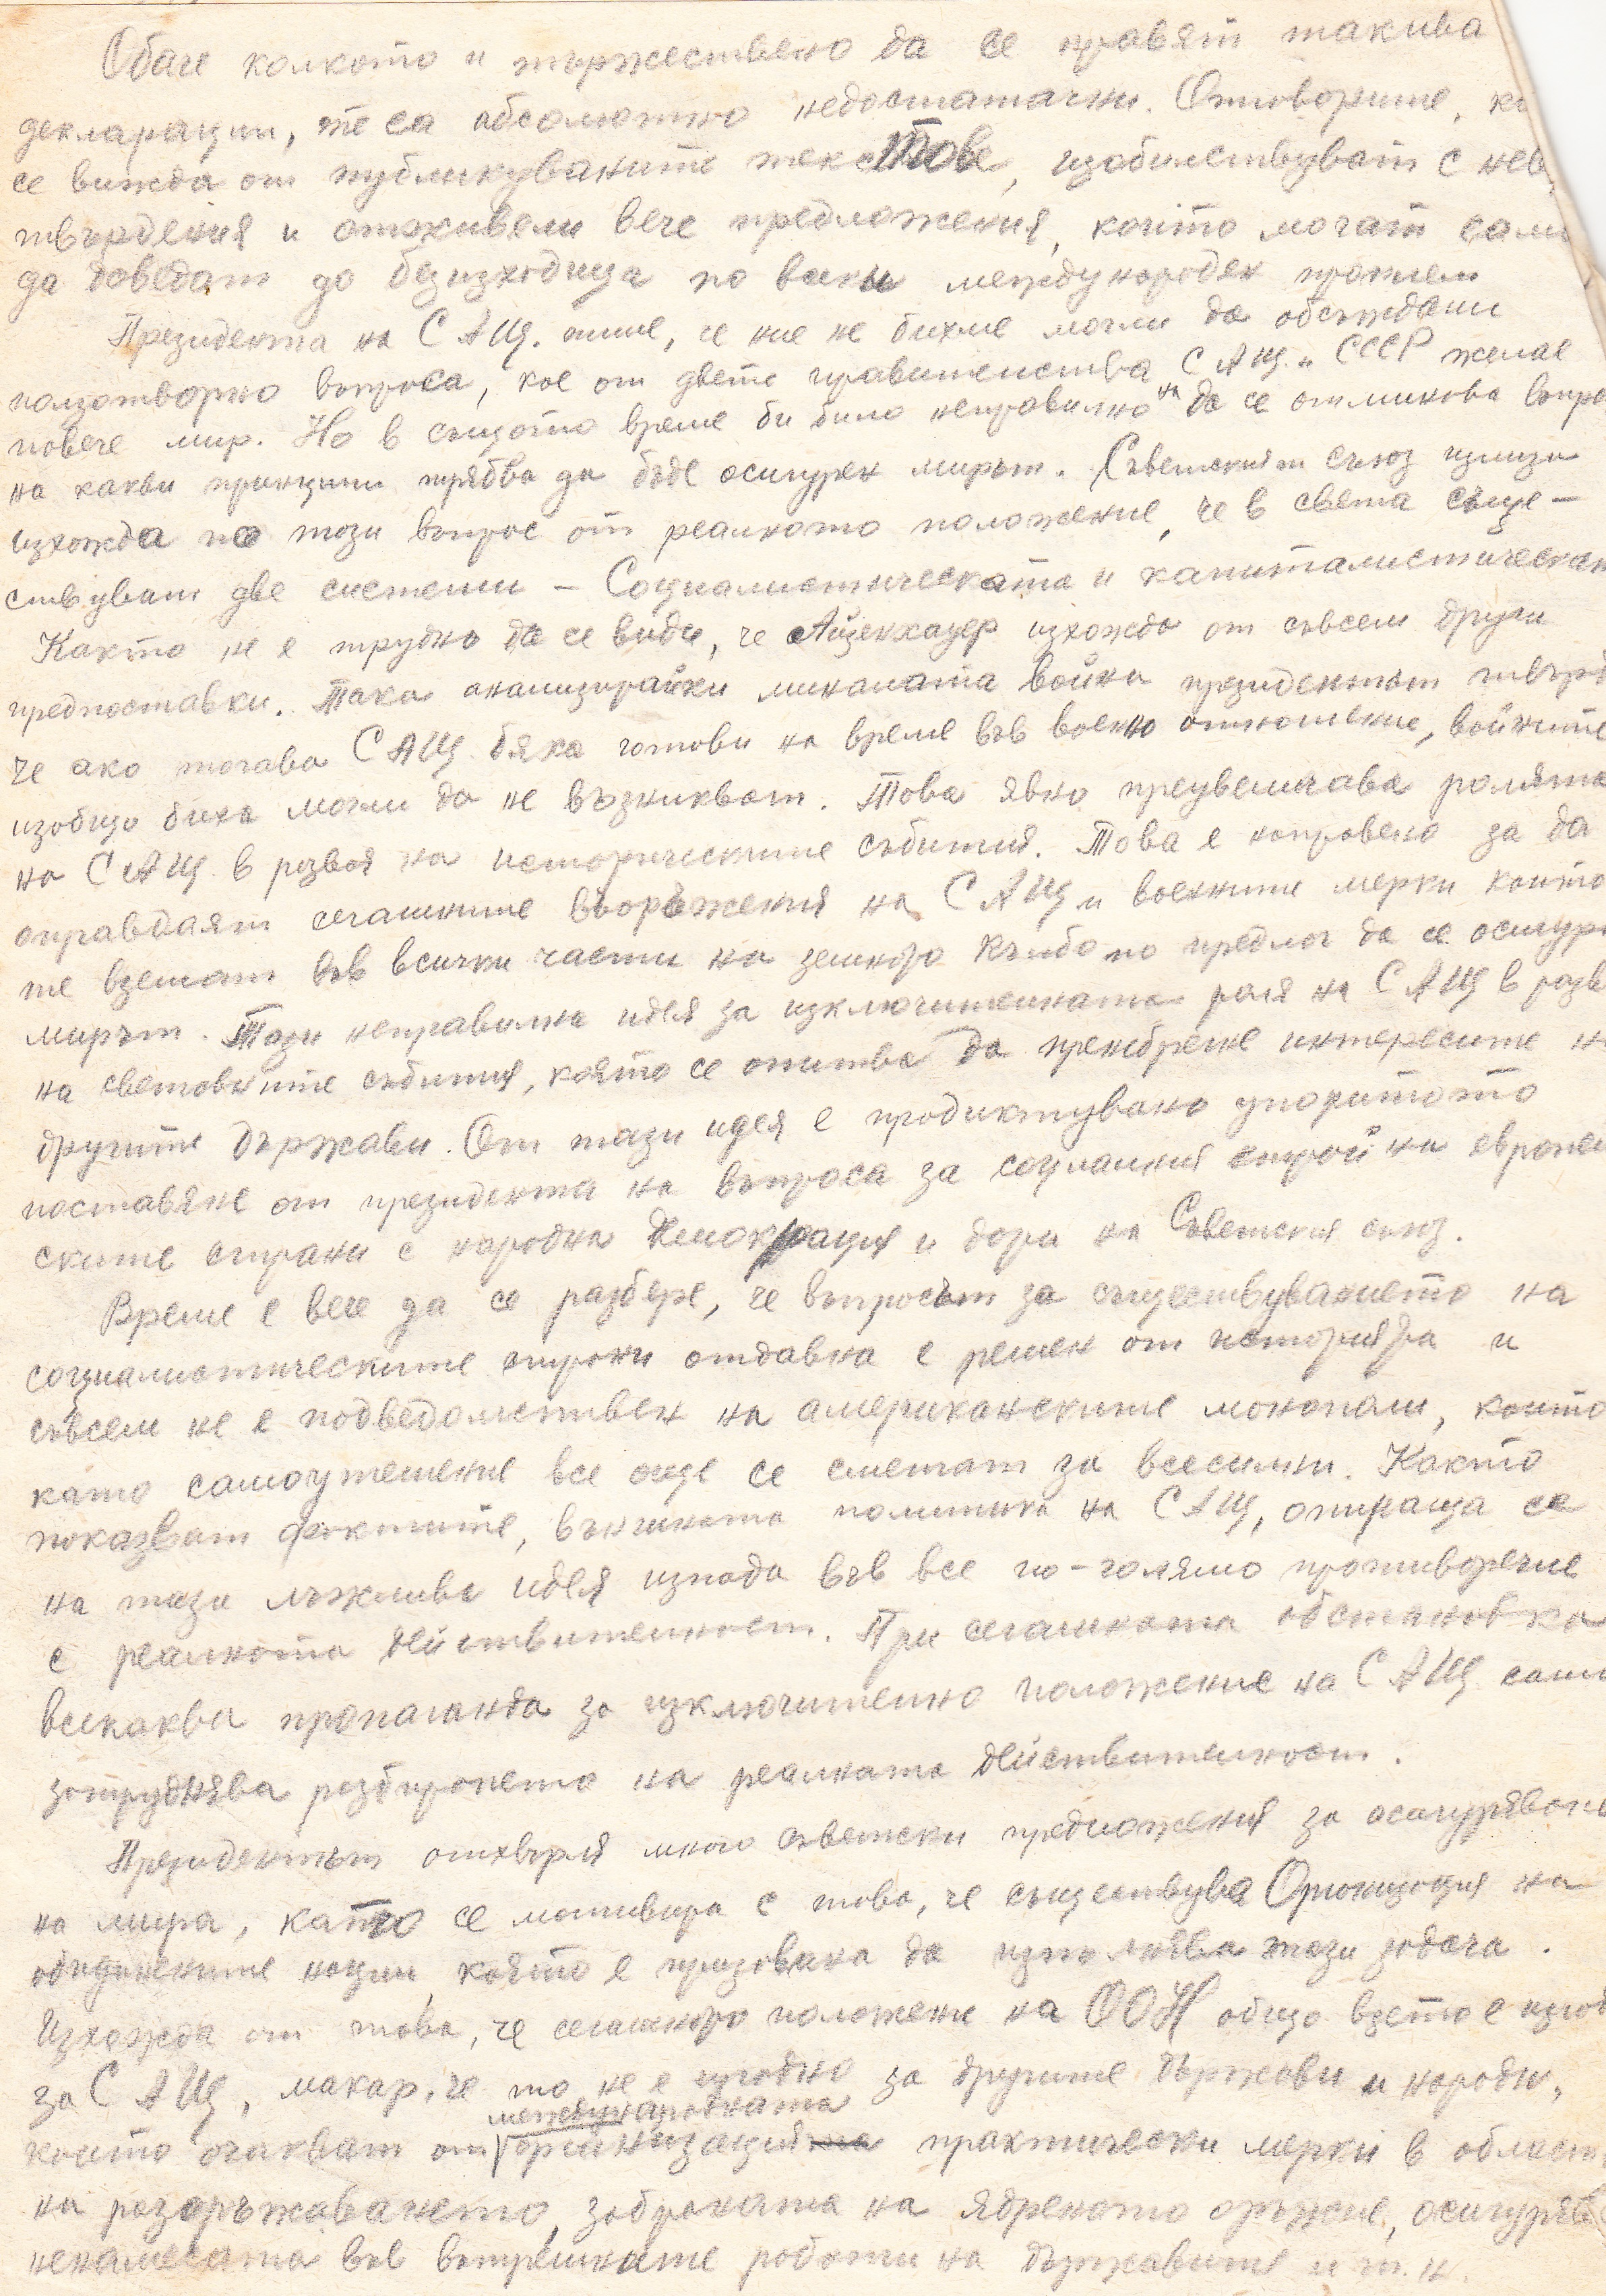 Обаче колкото и тържествено да се правят такива
декларации, те са абсолютно недостатачни. Отговорите, ка
се вижда от публикуваните текстове, изобилствуват с нев
твърдения и отживели вече предложения, които могат само
да доведат до безизходица по всеки международен проблем
Президента на САЩ. пише, че ние не бихме могли да обсъждаме
ползотворно въпроса, кое от двете правителства САЩ. и СССР желае
повече мир. Но в същото време би било неправилно да се отминава въпро
на какви принципи трябва да бъде осигурен мирът. Съветският съюз излиза
изхожда по този въпрос от реалното положение, че в света съще-
ствуват две системи - Социалистическата и капиталистическат
Както не е трудно да се види, че Айзенхауер изхожда от съвсем други
предпоставки. Така анализирайки миналата война президентът твърд
че ако тогава САЩ бяха готови на време във военно отношение, войните
изобщо биха могли да не възникват. Това явно преувеличава ролята
на САЩ в развоя на историческите събития. Това е направено за да
оправдаят сегашните въоръжения на САЩ и военните мерки които
те вземат във всички части на земното кълбо по предлог да се осигури
мирът. Тази неправилна идея за изключителната роля на САЩ в разв
на световните събития, която се опитва да пренебрегне интересите н
другите държави. От тази идея е продиктувано упоритото
поставяне от президента на въпроса за социалния строй на европей
ските страни с народна демокрация и дори на Съветския съюз.
Време е вече да се разбере, че въпросът за съществуванието на
социалистическите страни отдавна е решен от историята и
съвсем не е подведомствен на американските монополи, които
като самоутешение все още се смятат за всесилни. Както
показват фактите, външната политика на САЩ, опираща се
на тази лъжлива идея изпада във все по-голямо противоречие
с реалната действителност. При сегашната обстановка
всякаква пропаганда за изключително положение на САЩ само
затруднява разбирането на реалната действителност.
Президентът отхвърля много съветски предложения за осигуряване
на мира, като се мотивира с това, че съществува Организация на
обединените нации, която е призована да изпълнява тази задача.
Изхожда от това, че сегашното положение на ООН общо взето е изгод
за САЩ, макар, че то не е изгодно за другите държави и народи,
международната
които очакват от организация практически мерки в област
на разоръжаването, забраната на ядреното оръжие, осигуряв
ненамесата във вътрешните работи на държавите и т.н.